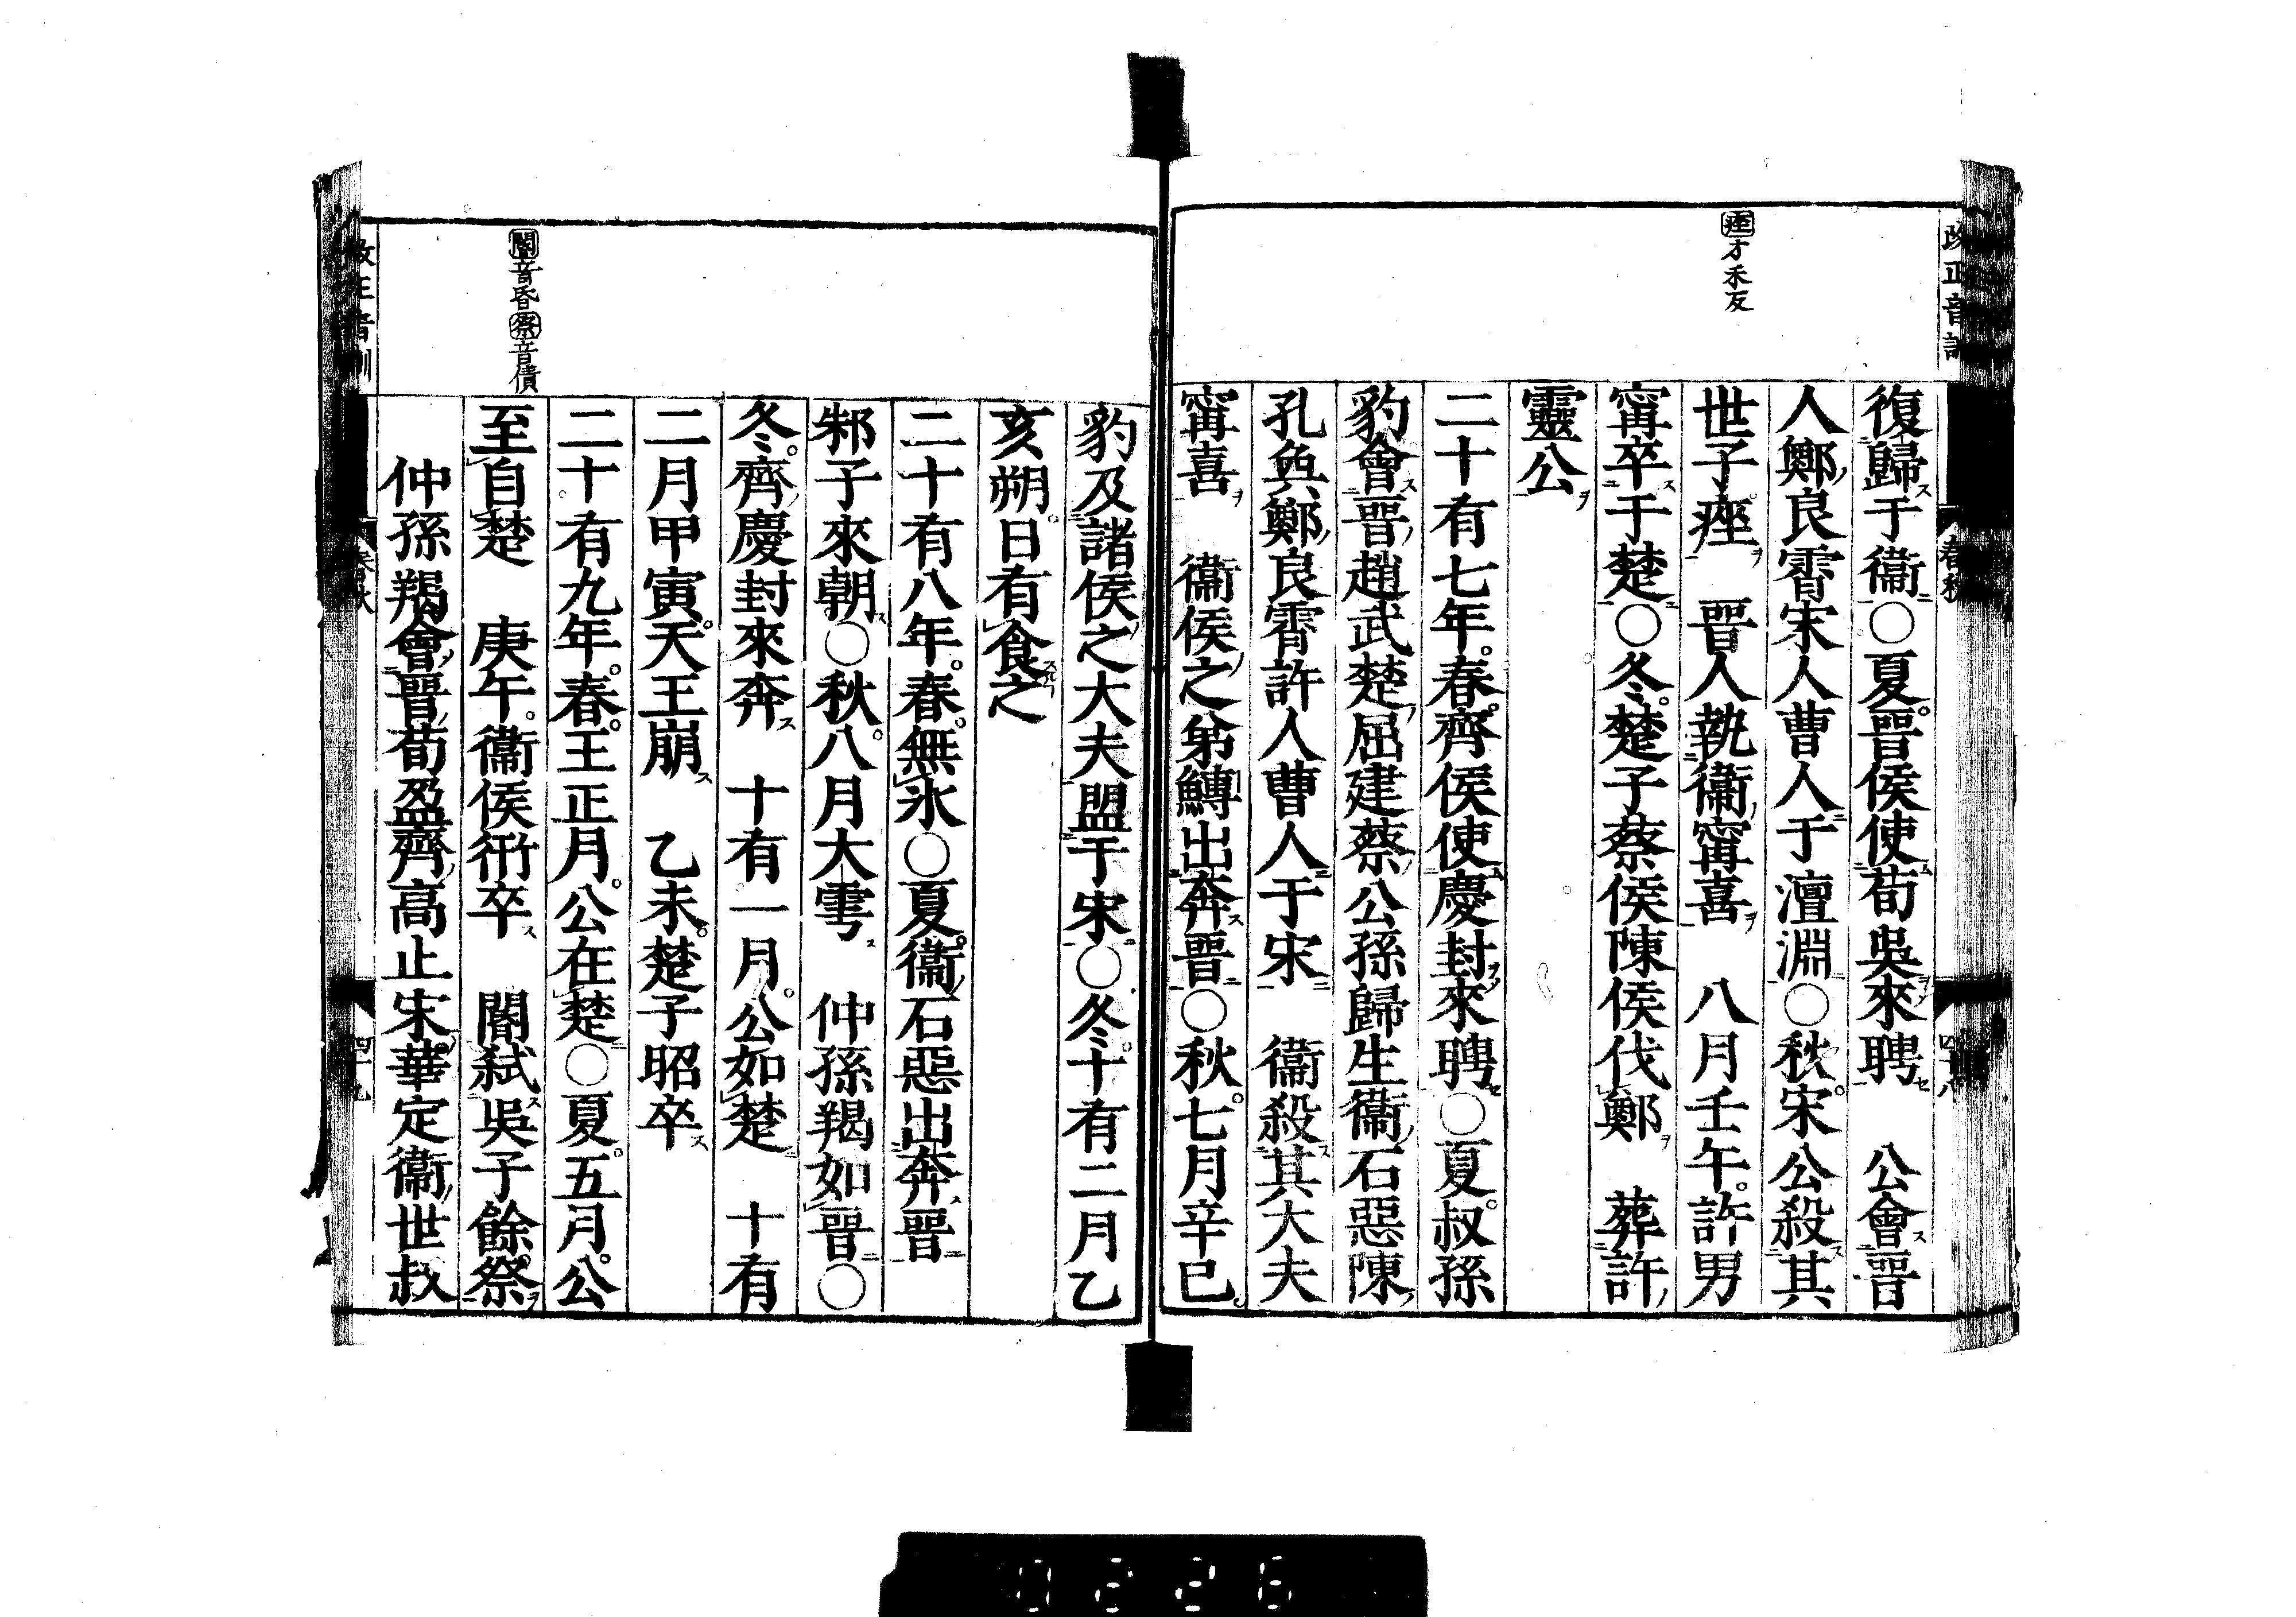 改正音訓
春秋
四十八
痤才禾反
復歸于衞○夏晉侯使荀吳來聘　公會晉
人鄭良霄宋人曹人于澶淵○秋宋公殺其
世子痤　晉人執衞甯喜　八月壬午許男
甯卒于楚○冬楚子蔡侯陳侯伐鄭　葬許
靈公
二十有七年春齊侯使慶封來聘○夏叔孫
豹會晉趙武楚屈建蔡公孫歸生衞石惡陳
孔奐鄭良霄許人曹人于宋　衞殺其大夫
甯喜　衞侯之弟鱄出奔晉○秋七月辛巳
豹及諸侯之大夫盟于宋○冬十有二月乙
亥朔日有食之
二十有八年春無氷○夏衞石惡出奔晉
邾子來朝○秋八月大雩　仲孫羯如晉○
冬齊慶封來奔　十有一月公如楚　十有
二月甲寅天王崩　乙未楚子昭卒
二十有九年春王正月公在楚○夏五月公
至自楚　庚午衞侯衎卒　閽弑吳子餘祭
仲孫羯會晉荀盈齊高止宋華定衞世叔
閽音昏祭音債
0226